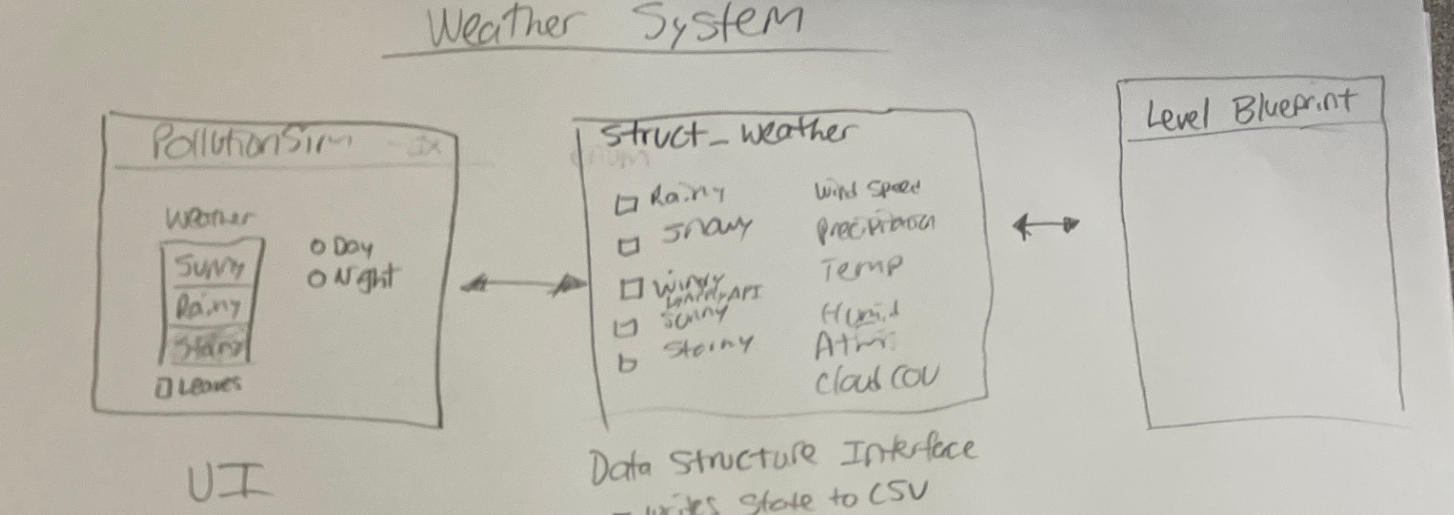 Weather System
PollutionSim
Weather
Sunny
Rainy
Stormy
Leaves
Day
Night
UI
Struct_weather
Rainy
Snowy
Windy
API
Sunny
Stormy
Wind Speed
Precipitation
Temp
Humid
Cloud COV
Data Structure Interface
- writes State to CSV
Level Blueprint